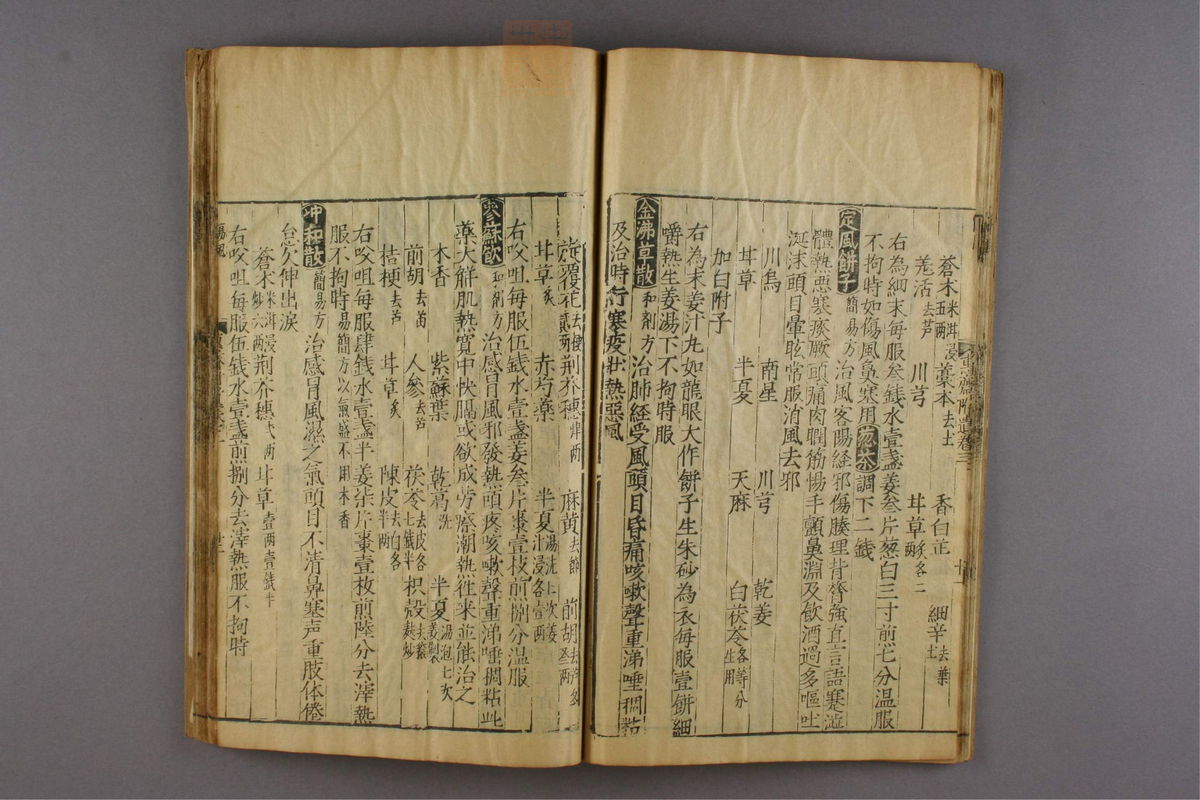 蒼朮米泔浸五兩 藁本去土 香白芷 細辛去葉土
羗活去芦 川芎 甘草炙各二兩
右為細末每服叁錢水壹盞姜叁片葱白三寸煎七分温服
不拘時如傷風鼻塞用葱茶調下二錢
定風餅子簡易方治風客陽経邪傷腠理背膂強直言語蹇澁
體熱悪寒痰厥頭痛肉瞤筋惕手顫鼻淵及飲酒過多嘔吐
涎沫頭目暈眩常服消風去邪
川烏 南星 川芎 乾姜
甘草 半夏 天麻 白茯苓各等分生用
加白附子
右為末姜汁丸如龍眼大作餅子生朱砂為衣每服壹餅細
嚼熱生姜湯下不拘時服
金沸草散和剤方治肺経受風頭目昏痛咳嗽聲重涕唾稠粘
及治時行寒疫壮熱惡風
旋覆花去梗 荆芥穗肆两 麻黄去節 前胡去芦各叁两
甘草炙 赤芍藥 半夏湯洗七次姜汁浸各壹两
右㕮咀每服伍錢水壹盞姜叁片棗壹枝煎捌分温服
參蘇飲和剤方治感冒風邪發熱頭疼咳嗽聲重涕唾稠粘此
藥大觧肌熱寛中快膈或欲成労瘵潮熱徃来並能治之
木香 紫蘇葉 乾葛洗 半夏湯泡七次姜製
前胡去苗 人參去芦 茯苓去皮各七錢半 枳殼去穰麩炒
桔梗去芦 甘草炙 陳皮去白各半两
右㕮咀每服肆錢水壹盞半姜柒片棗壹枚煎陸分去滓熱
服不拘時易簡方以氣盛不用木香
冲和散簡易方治感冒風濕之氣頭目不清鼻塞声重肢体倦
怠欠伸出淚
蒼朮米泔浸炒六两 荆芥穗弍两 甘草壹两壹錢半
右㕮咀每服伍錢水壹盞煎捌分去滓熱服不拘時
傷風